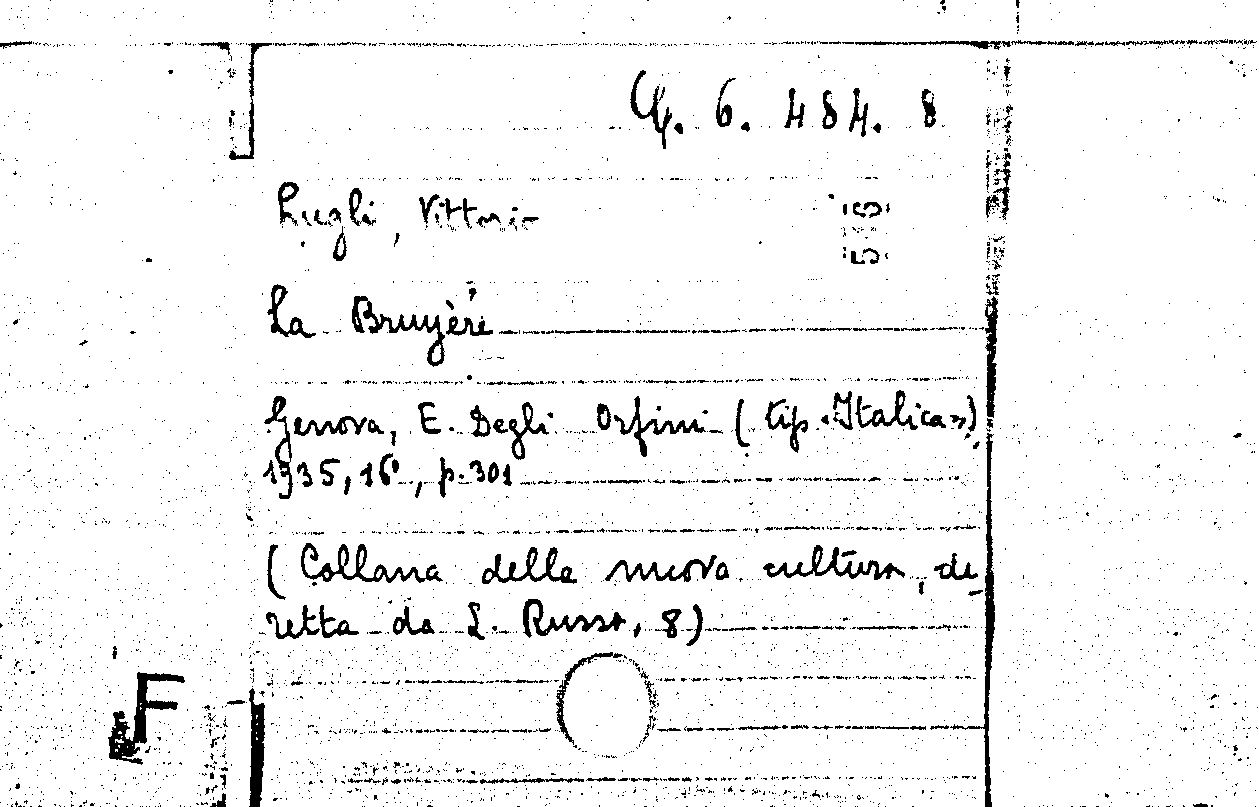 6. 484. 8
Lugli, Vittorio
La Bruyère
Genova, E. Degli Orfini (tip. «Italica»)
1935, 16°, p. 301
(Collana della nuova cultura, di
retta da L. Russo, 8)
F